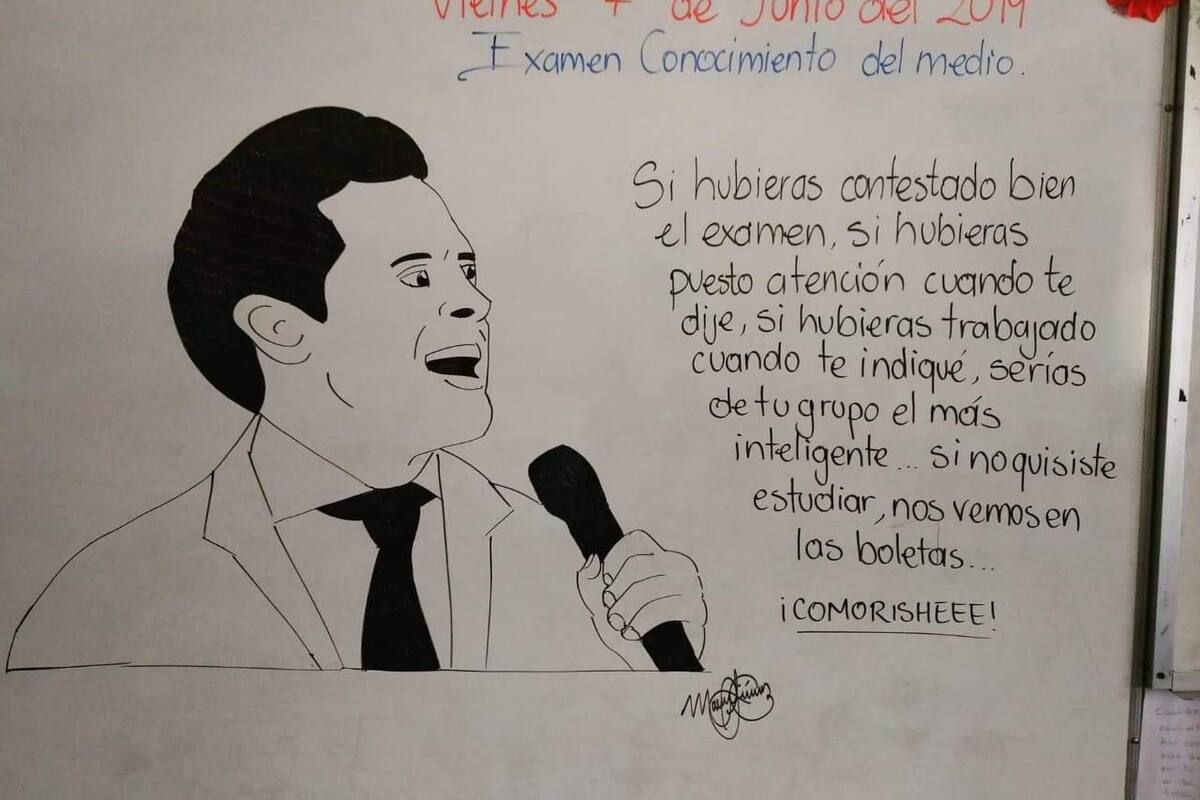 Viernes 7 de Junio del 2019
Examen Conocimiento del medio.
Si hubieras contestado bien
el examen, si hubieras
puesto atención cuando te
dije, si hubieras trabajado
cuando te indiqué, serías
de tu grupo el más
inteligente... si no quisiste
estudiar, nos vemos en
las boletas...
¡COMORISHEEE!